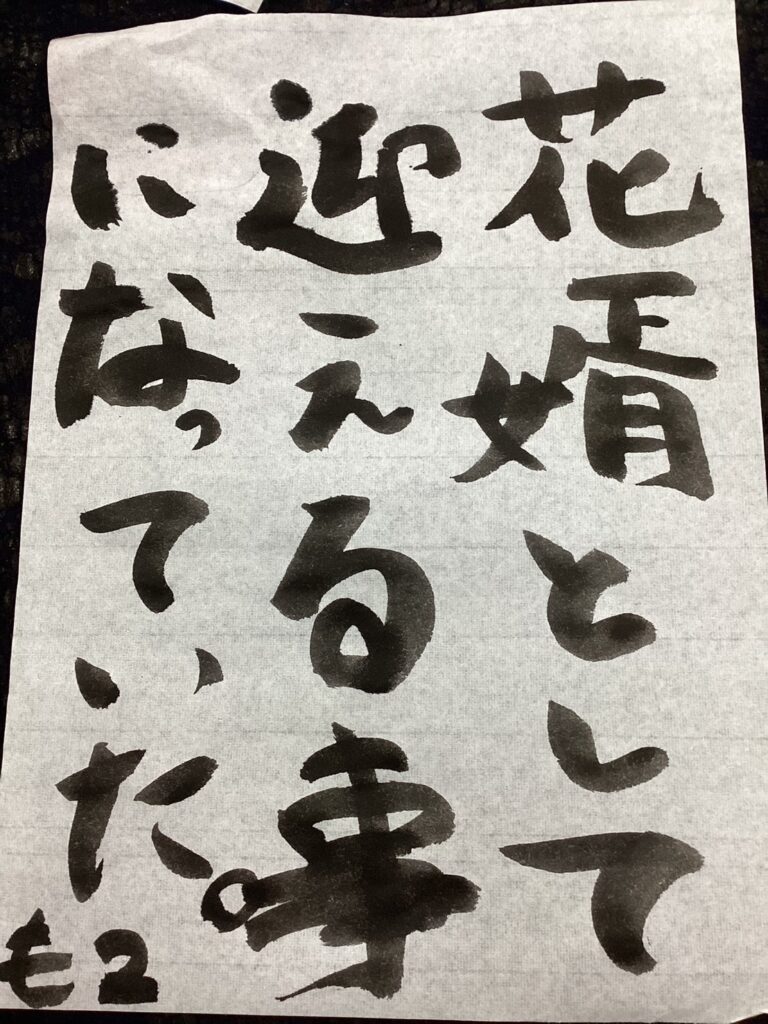 花婿として
迎える事
になっていた。
も2